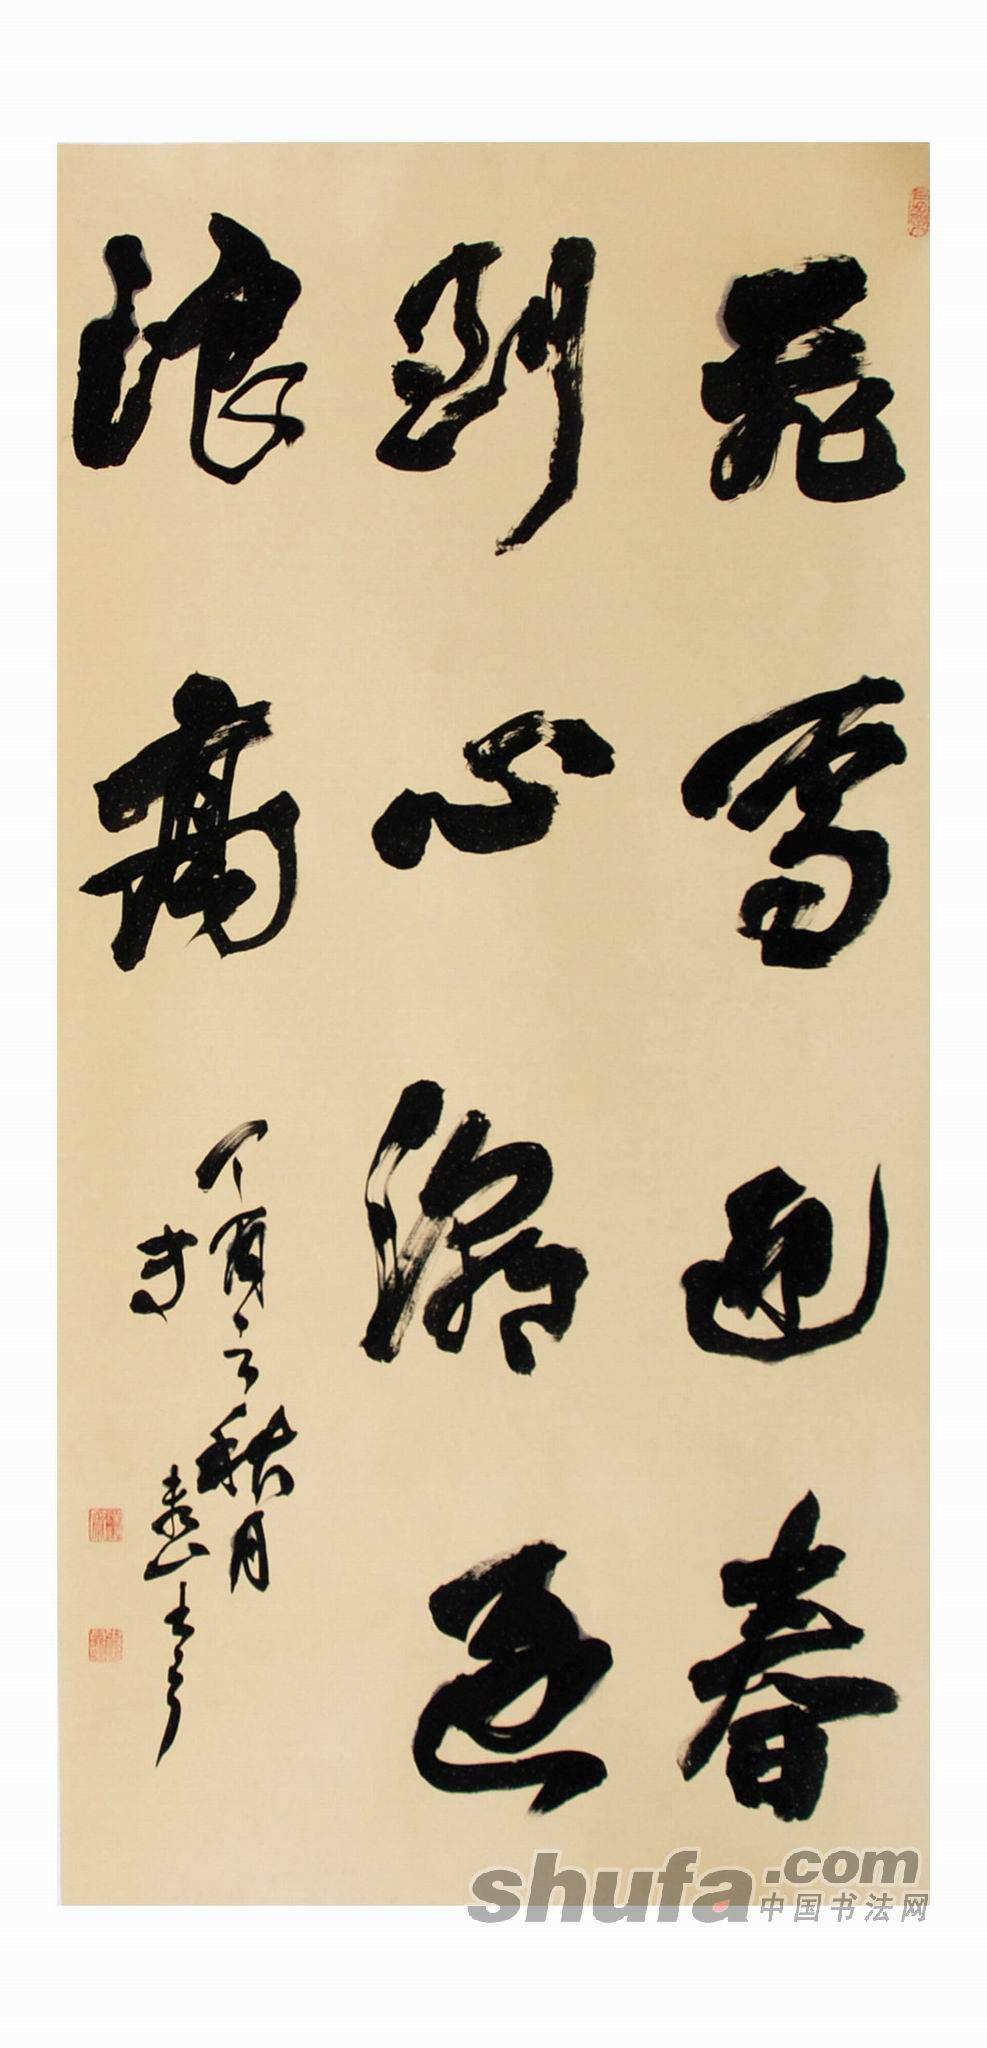 飛雪迎春
到心潮逐
浪高
秋月
泰山
shufa.com
中国书法网